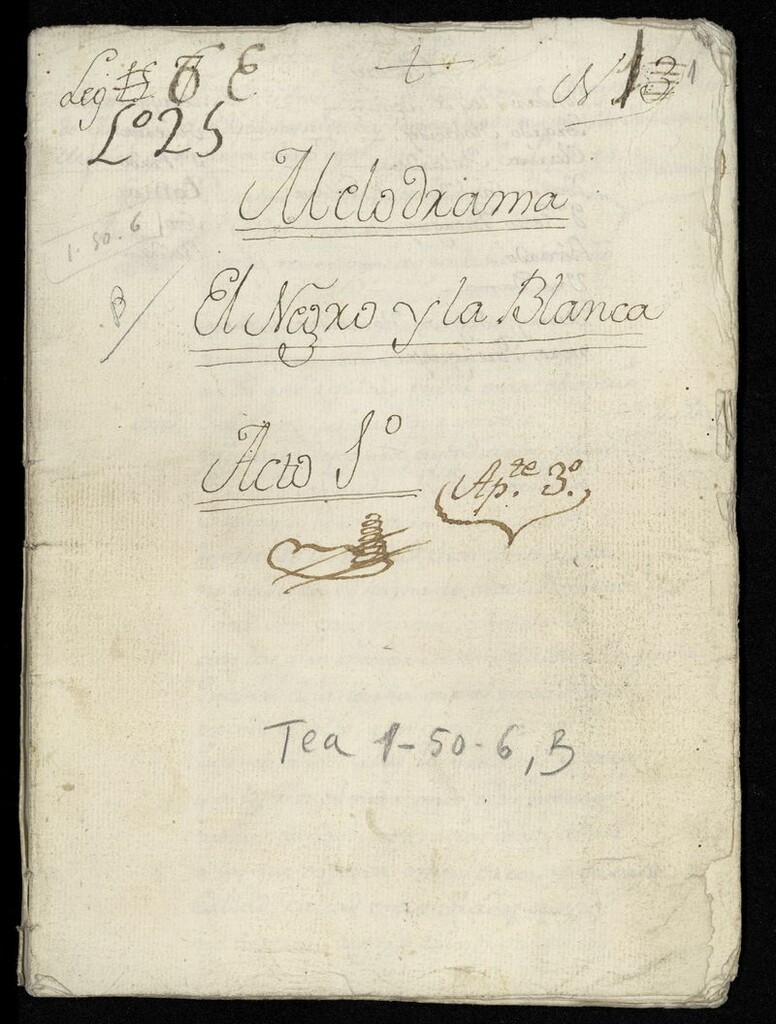 Leg
L.º 25
N 1
1
Melodrama
1-50-6
B
El Negro y la Blanca
Acto 1º
Ap.te 3.º
Tea 1-50-6, B